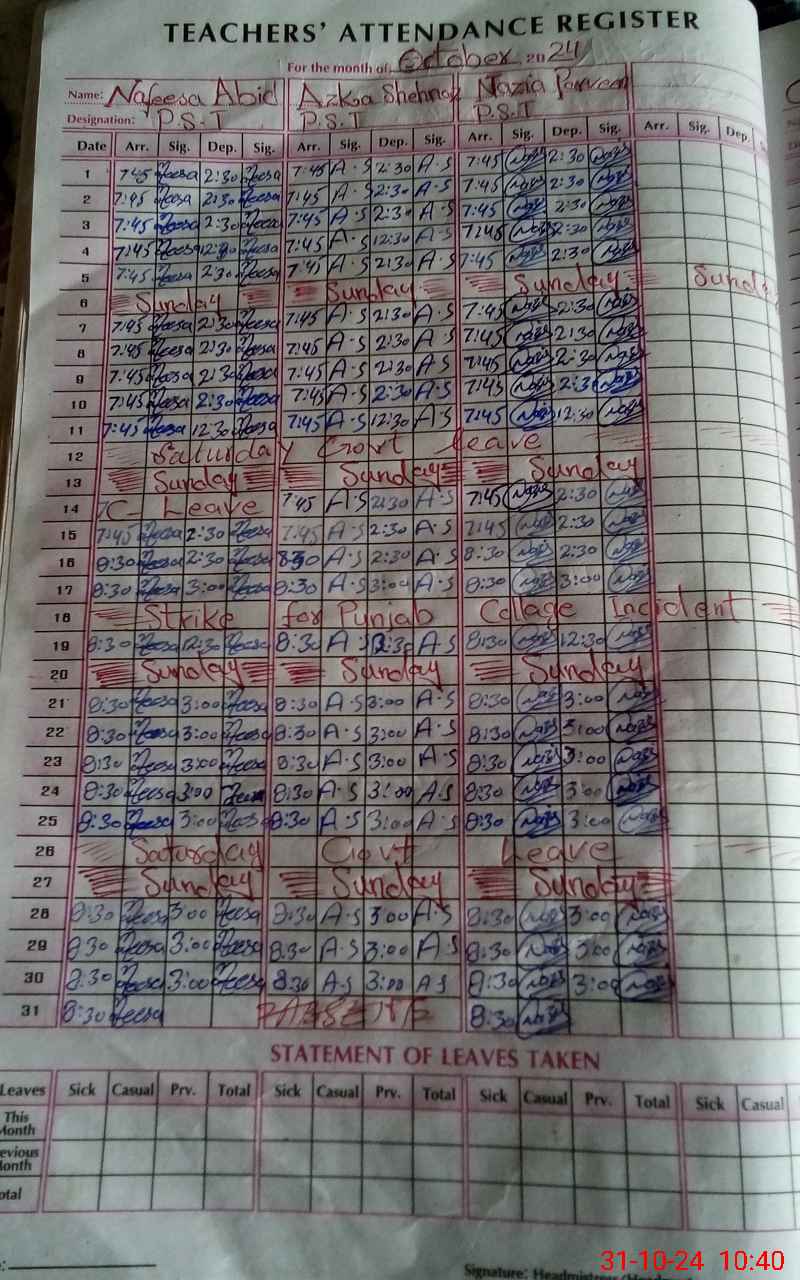 TEACHERS' ATTENDANCE REGISTER
For the month of October 2024
Name: Nafeesa Abid Azka Shehnaz Nazia Parveen
Designation: P.S.T P.S.T P.S.T
Date Arr. Sig. Dep. Sig. Arr. Sig. Dep. Sig. Arr. Sig. Dep. Sig. Arr. Sig. Dep.
1 7:45 feesa 2:30 feesa 7:45 A.S 2:30 A.S 7:45 Nazi 2:30 Nazi
2 7:45 feesa 2:30 feesa 7:45 A.S 2:30 A.S 7:45 Nazi 2:30 Nazi
3 7:45 feesa 2:30 feesa 7:45 A.S 2:30 A.S 7:45 Nazi 2:30 Nazi
4 7:45 feesa 12:30 feesa 7:45 A.S 12:30 A.S 7:45 Nazi 2:30 Nazi
5 7:45 feesa 2:30 feesa 7:45 A.S 2:30 A.S 7:45 Nazi 2:30 Nazi
6 Sunday Sunday Sunday Sunday
7 7:45 feesa 2:30 feesa 7:45 A.S 2:30 A.S 7:45 Nazi 2:30 Nazi
8 7:45 feesa 2:30 feesa 7:45 A.S 2:30 A.S 7:45 Nazi 2:30 Nazi
9 7:45 feesa 2:30 feesa 7:45 A.S 2:30 A.S 7:45 Nazi 2:30 Nazi
10 7:45 feesa 2:30 feesa 7:45 A.S 2:30 A.S 7:45 Nazi 2:30 Nazi
11 7:45 feesa 12:30 feesa 7:45 A.S 12:30 A.S 7:45 Nazi 12:30 Nazi
12 Saturday Govt leave
13 Sunday Sunday Sunday
14 C- Leave 7:45 A.S 2:30 A.S 7:45 Nazi 2:30 Nazi
15 7:45 feesa 2:30 feesa 7:45 A.S 2:30 A.S 7:45 Nazi 2:30 Nazi
16 8:30 feesa 2:30 feesa 8:30 A.S 2:30 A.S 8:30 Nazi 2:30 Nazi
17 8:30 feesa 3:00 feesa 8:30 A.S 3:00 A.S 8:30 Nazi 3:00 Nazi
18 Strike for Punjab Collage Incident
19 8:30 feesa 12:30 feesa 8:30 A.S 12:30 A.S 8:30 Nazi 12:30 Nazi
20 Sunday Sunday Sunday
21 8:30 feesa 3:00 feesa 8:30 A.S 3:00 A.S 8:30 Nazi 3:00 Nazi
22 8:30 feesa 3:00 feesa 8:30 A.S 3:00 A.S 8:30 Nazi 3:00 Nazi
23 8:30 feesa 3:00 feesa 8:30 A.S 3:00 A.S 8:30 Nazi 3:00 Nazi
24 8:30 feesa 3:00 feesa 8:30 A.S 3:00 A.S 8:30 Nazi 3:00 Nazi
25 8:30 feesa 3:00 feesa 8:30 A.S 3:00 A.S 8:30 Nazi 3:00 Nazi
26 Saturday Govt Leave
27 Sunday Sunday Sunday
28 8:30 feesa 3:00 feesa 8:30 A.S 3:00 A.S 8:30 Nazi 3:00 Nazi
29 8:30 feesa 3:00 feesa 8:30 A.S 3:00 A.S 8:30 Nazi 3:00 Nazi
30 8:30 feesa 3:00 feesa 8:30 A.S 3:00 A.S 8:30 Nazi 3:00 Nazi
31 8:30 feesa 8:30 Nazi
STATEMENT OF LEAVES TAKEN
Leaves Sick Casual Prv. Total Sick Casual Prv. Total Sick Casual Prv. Total Sick Casual
This
Month
evious
onth
otal
Signature: Headmistress
31-10-24 10:40